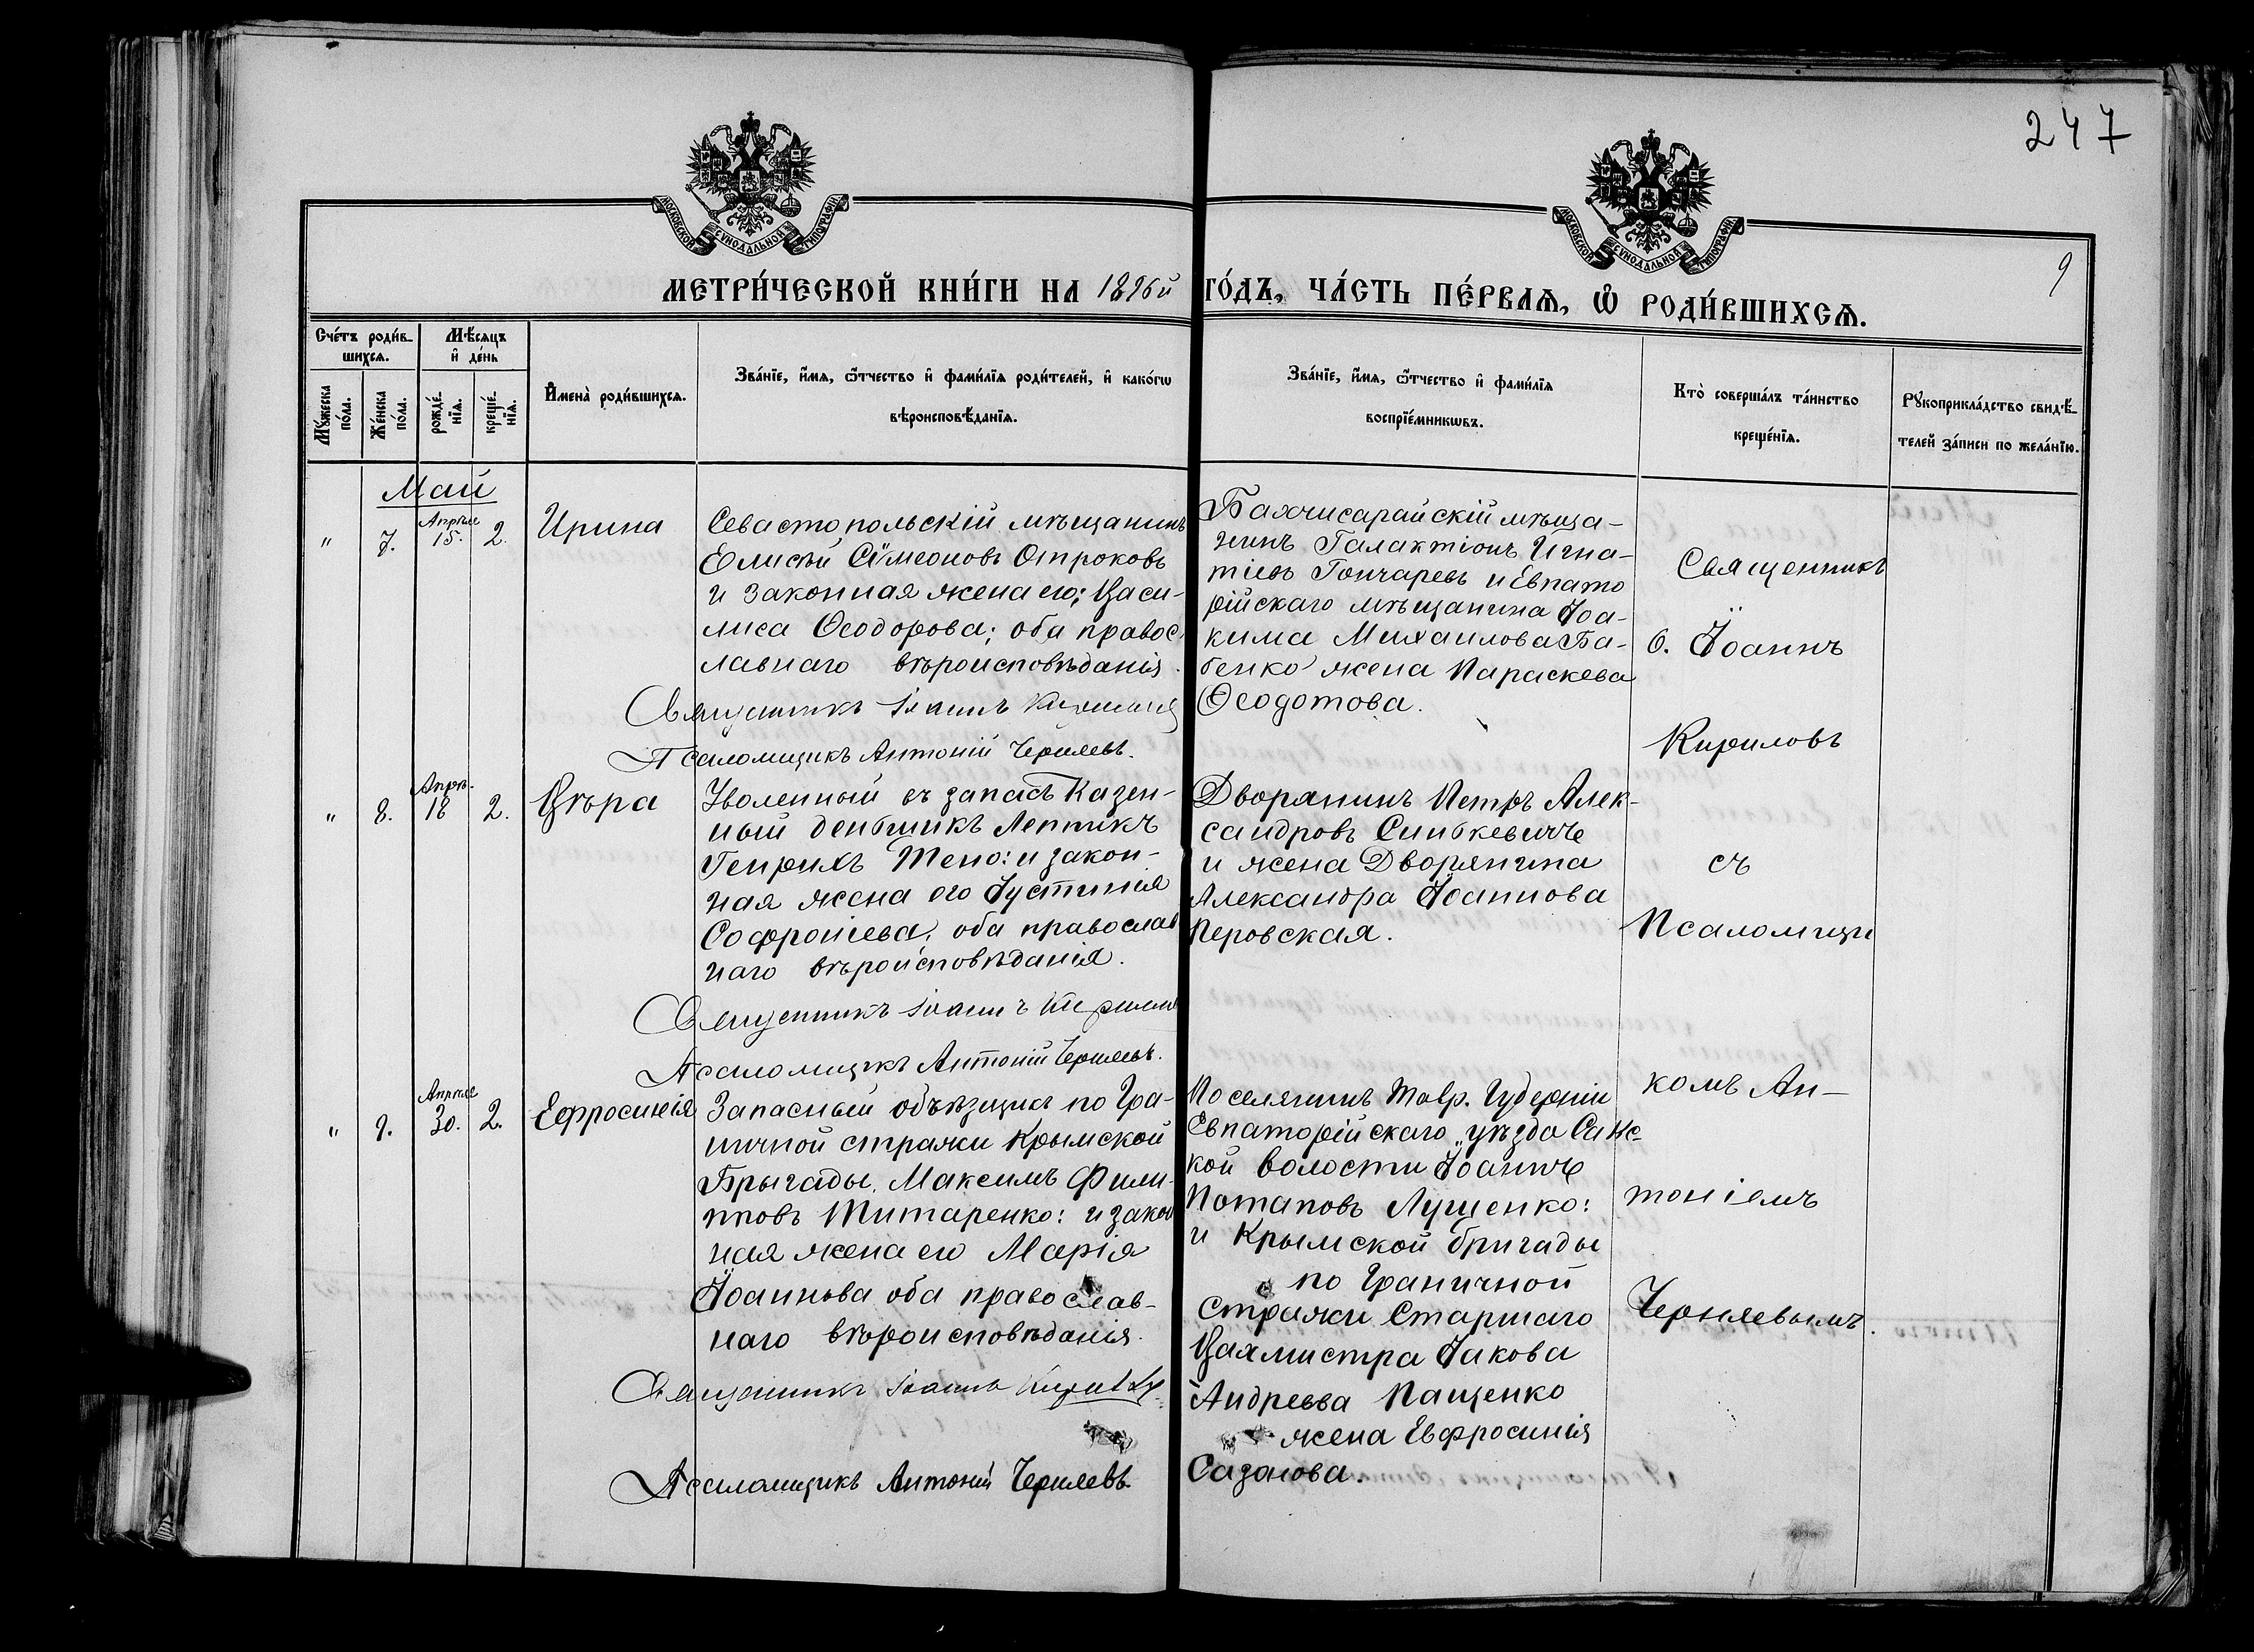 247
9
МОСКОВСКОЙ СУНОДАЛЬНОЙ ТИПОГРАФІИ
МОСКОВСКОЙ СУНОДАЛЬНОЙ ТИПОГРАФІИ
МЕТРИ́ЧЕСКОЙ КНИ́ГИ НА 1896й ГО́ДЪ, ЧА́СТЬ ПЕ́РВАЯ, Ѡ РОДИ́ВШИХСЯ.
Сче́тъ роди́в-
шихся.
Мѣ́сяцъ
и де́нь
Му́жеска
по́ла.
Же́нска
по́ла.
рожде́-
нїя.
креще́-
нїя.
Имена̀ роди́вшихся.
Зва́нїе, и́мя, ѻ́тчество и фами́лїя роди́телей, и како́гѡ
вѣроисповѣ́данїя.
Зва́нїе, и́мя, ѻ́тчество и фами́лїя
воспрїе́мникѡвъ.
Кто̀ соверша́лъ та́инство
креще́нїя.
Рꙋкоприкла́дство свидѣ́-
телей за́писи по жела́нїю.
Май
" 7. Апрѣля 15. 2. Ирина
Севастопольскій мѣщанинъ
Елисѣй Сѵмеоновъ Отроковъ
и законная жена его; Васи-
лиса Ѳеодорова; оба правос
лавнаго вѣроисповѣданія.
Священникъ Іоаннъ
Псаломщикъ Антоній Черняевъ.
Бахчисарайскій мѣща-
нинъ Галактіонъ Игна-
тіевъ Гончаревъ и Евпато
рійскаго мѣщанина Іоа-
кима Михаилова Ба-
бенко жена Параскева
Ѳеодотова.
Священникъ
о. Іоаннъ
Кириловъ
съ
Псаломщи
комъ Ан-
тоніемъ
Черняевымъ.
" 8. Апрѣ. 18 2. Вѣра
Уволенный въ запасъ Казен-
ный деньщикъ Лептикъ
Генрихъ Тено: и закон-
ная жена его Іустинія
Софроніева; оба православ
наго вѣроисповѣданія.
Священникъ Іоаннъ Кирилловъ
Псаломщикъ Антоній Черняевъ.
Дворянинъ Петръ Алек-
сандровъ Синькевичъ
и жена Дворянина
Александра Іоаннова
Перовская.
" 9. Апрѣля 30. 2. Ефросинія
Запасный объѣзщикъ по Гра-
ничной стражи Крымской
Брыгады, Максимъ Фили-
пповъ Титаренко: и закон
ная жена его Марія
Іоаннова оба православ-
наго вѣроисповѣданія.
Священникъ Іоаннъ
Псаломщикъ Антоній Черняевъ
Поселянинъ Тавр. Губерніи
Евпаторійскаго уѣзда
кой волости Іоаннъ
Потаповъ Лущенко:
и Крымской бригады
по Граничной
стражи Старшаго
Вахмистра Іакова
Андреева Пащенко
жена Евфросинія
Сазонова.